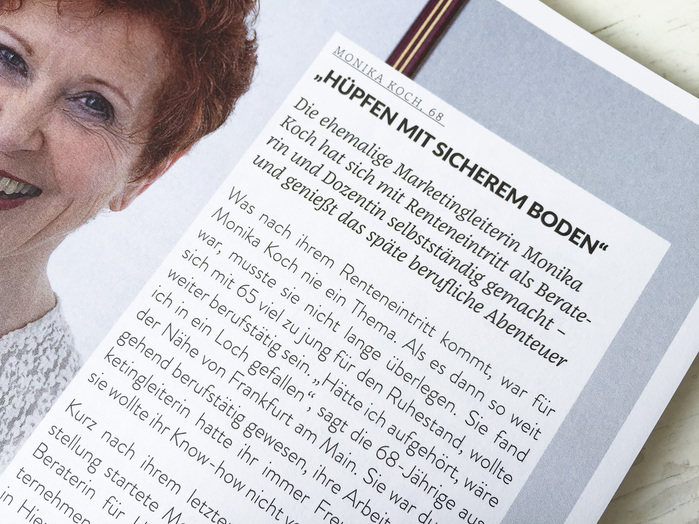 MONIKA KOCH, 68
„HÜPFEN MIT SICHEREM BODEN“
Die ehemalige Marketingleiterin Monika
Koch hat sich mit Renteneintritt als Berate-
rin und Dozentin selbstständig gemacht –
und genießt das späte berufliche Abenteuer
Was nach ihrem Renteneintritt kommt, war für
Monika Koch nie ein Thema. Als es dann so weit
war, musste sie nicht lange überlegen. Sie fand
sich mit 65 viel zu jung für den Ruhestand, wollte
weiter berufstätig sein. „Hätte ich aufgehört, wäre
ich in ein Loch gefallen“, sagt die 68-Jährige aus
der Nähe von Frankfurt am Main. Sie war
gehend berufstätig gewesen, ihre
ketingleiterin hatte ihr immer
sie wollte ihr Know-how nicht
Kurz nach ihrem
stellung startete
Beraterin für
ternehmen
in